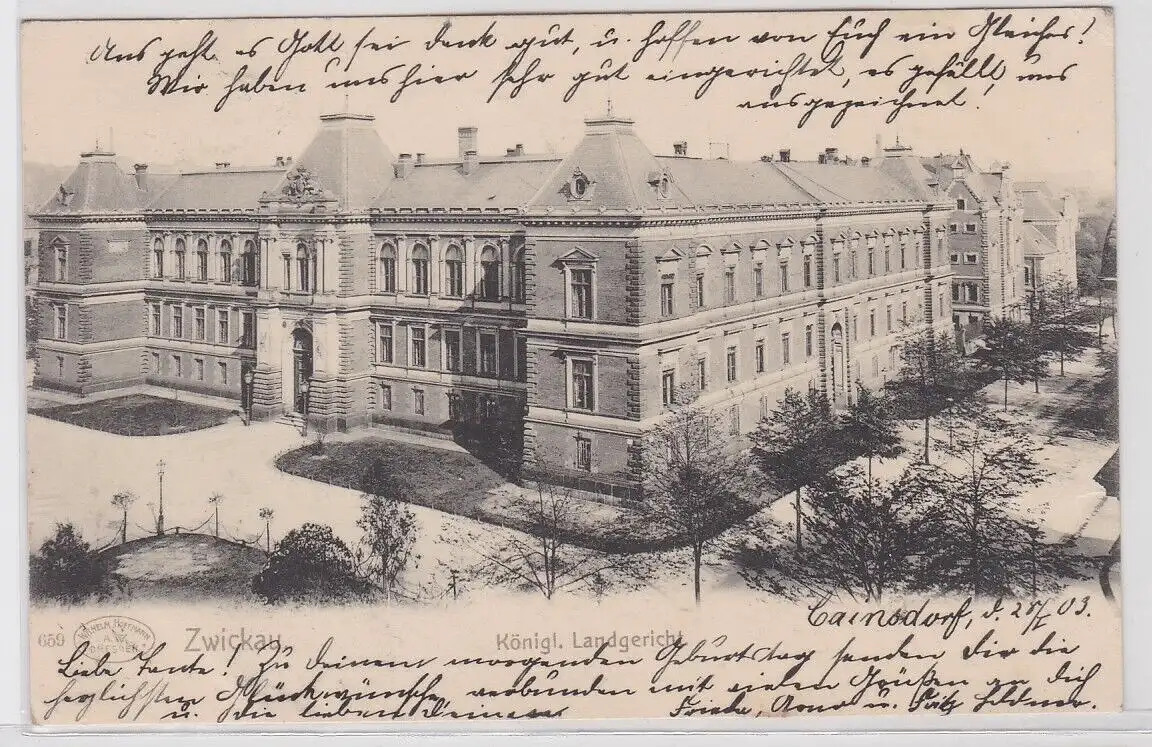 Uns geht es Gott sei dank gut, u. hoffen von Euch ein Gleiches!
Wir haben uns hier sehr gut eingerichtet, es gefällt uns
ausgezeichnet.
Cainsdorf, d. 03.
659 WILHELM HOFFMANN A.G. DRESDEN Zwickau Königl. Landgericht.
Liebe Tante! Zu Deinem morgenden Geburtstag senden Dir die
herzlichsten Glückwünsche verbunden mit vielen Grüßen an Dich
u. die lieben Deinen Frieda, Arno u. Fritz